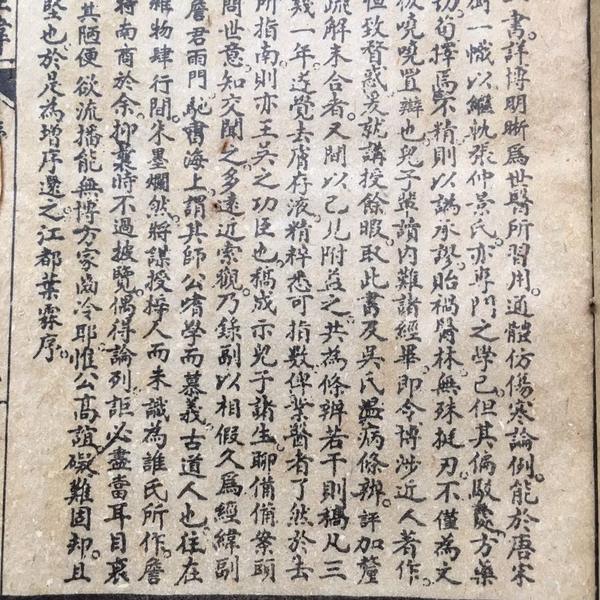 書詳博明晰為世醫所習用通體仿傷寒論例。能於唐宋
樹一幟以繼軌張仲景氏亦專門之學已。但其偏駁處方藥
切苟擇焉不精則以譌承謬貽禍醫林無殊挺刃。不僅為文
後嘵嘵置辨也。兒子輩讀內難諸經畢即令博涉近人著作。
恒致瞀惑爰就講授餘暇取此書及吳氏溫病條辨。評加釐
疏解未合者。又間以己見附益之。共為條辨若干則稿凡三
幾一年遂覺去膚存液精粹悉可指數俾業醫者了然於去
所指南則亦王吳之功臣也。稿成示兒子諸生。聊備備案頭
問世意。知交聞之多遠近索觀。乃錄副以相假久為經緯副
詹君雨門馳書海上。謂其師公嗜學而慕義。古道人也。往在
雜物肆行間。朱墨爛然將謀授梓人而未識為誰氏所作。詹
特南商於余。抑棄時不過披覽偶得論列詎必盡當耳目衰
其陋便欲流播能無博方家齒冷耶。惟公高誼礙難固却且
堅也。於是為增序還之。江都葉霖序。